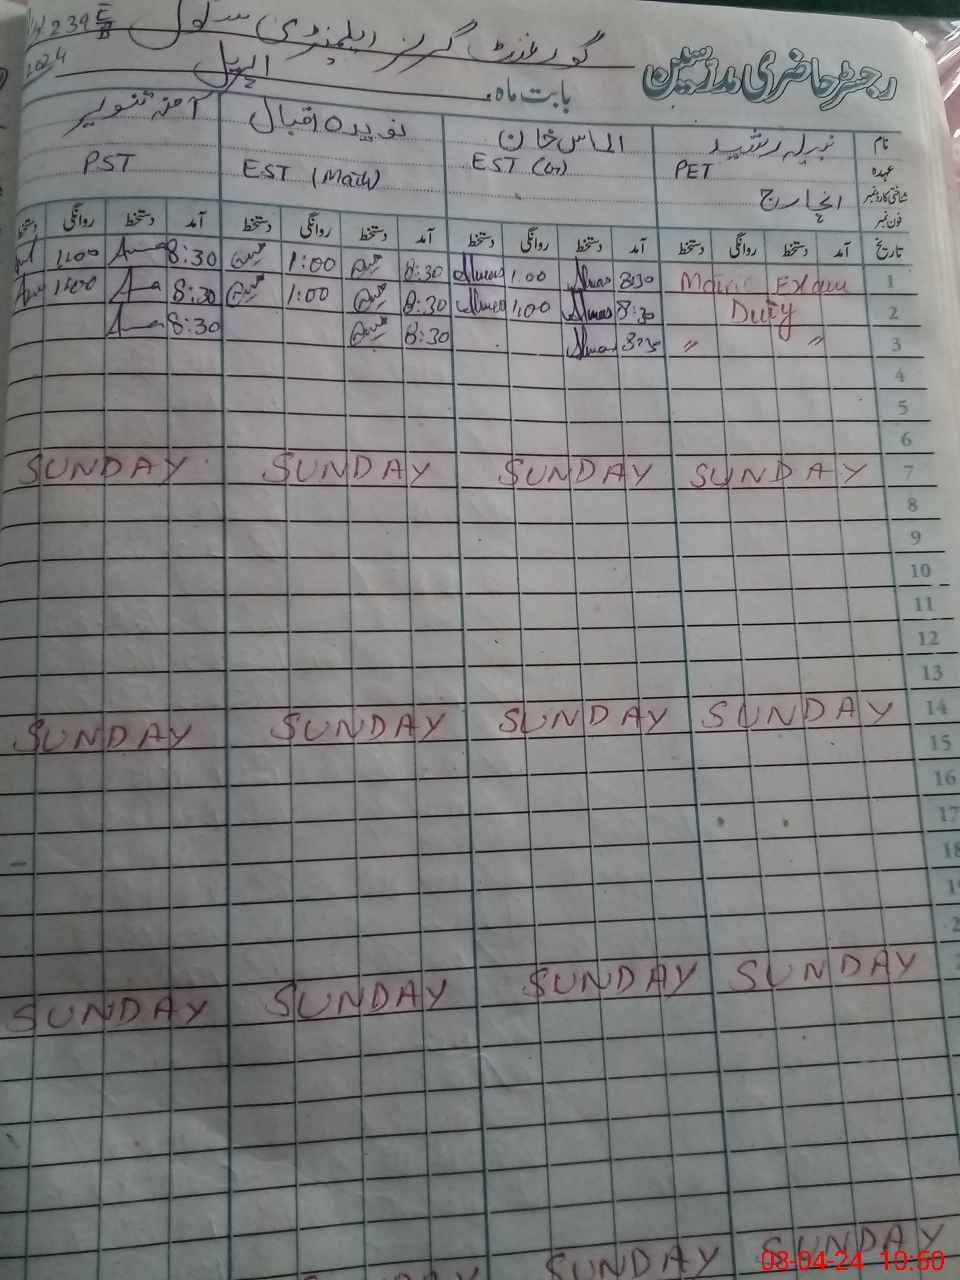 239 E/B گورنمنٹ گرلز ایلیمنٹری سکول
رجسٹر حاضری مدرسین
بابت ماہ اپریل 2024
نام نبیلہ رشید الماس خان نویدہ اقبال آمنہ تنویر
عہدہ PET EST (G) EST (Math) PST
شناختی کارڈ نمبر انچارج
فون نمبر
تاریخ آمد دستخط روانگی دستخط آمد دستخط روانگی دستخط آمد دستخط روانگی دستخط آمد دستخط روانگی دستخط
1 Matric Exam 8:30 Almas 1:00 Almas 8:30 1:00 8:30 1:00
2 Duty 8:30 Almas 1:00 Almas 8:30 1:00 8:30 1:00
3 〃 〃 8:30 Almas 8:30 8:30
4
5
6
7 SUNDAY SUNDAY SUNDAY SUNDAY
8
9
10
11
12
13
14 SUNDAY SUNDAY SUNDAY SUNDAY
15
16
17
18
SUNDAY SUNDAY SUNDAY SUNDAY
SUNDAY SUNDAY
08-04-24 10:50